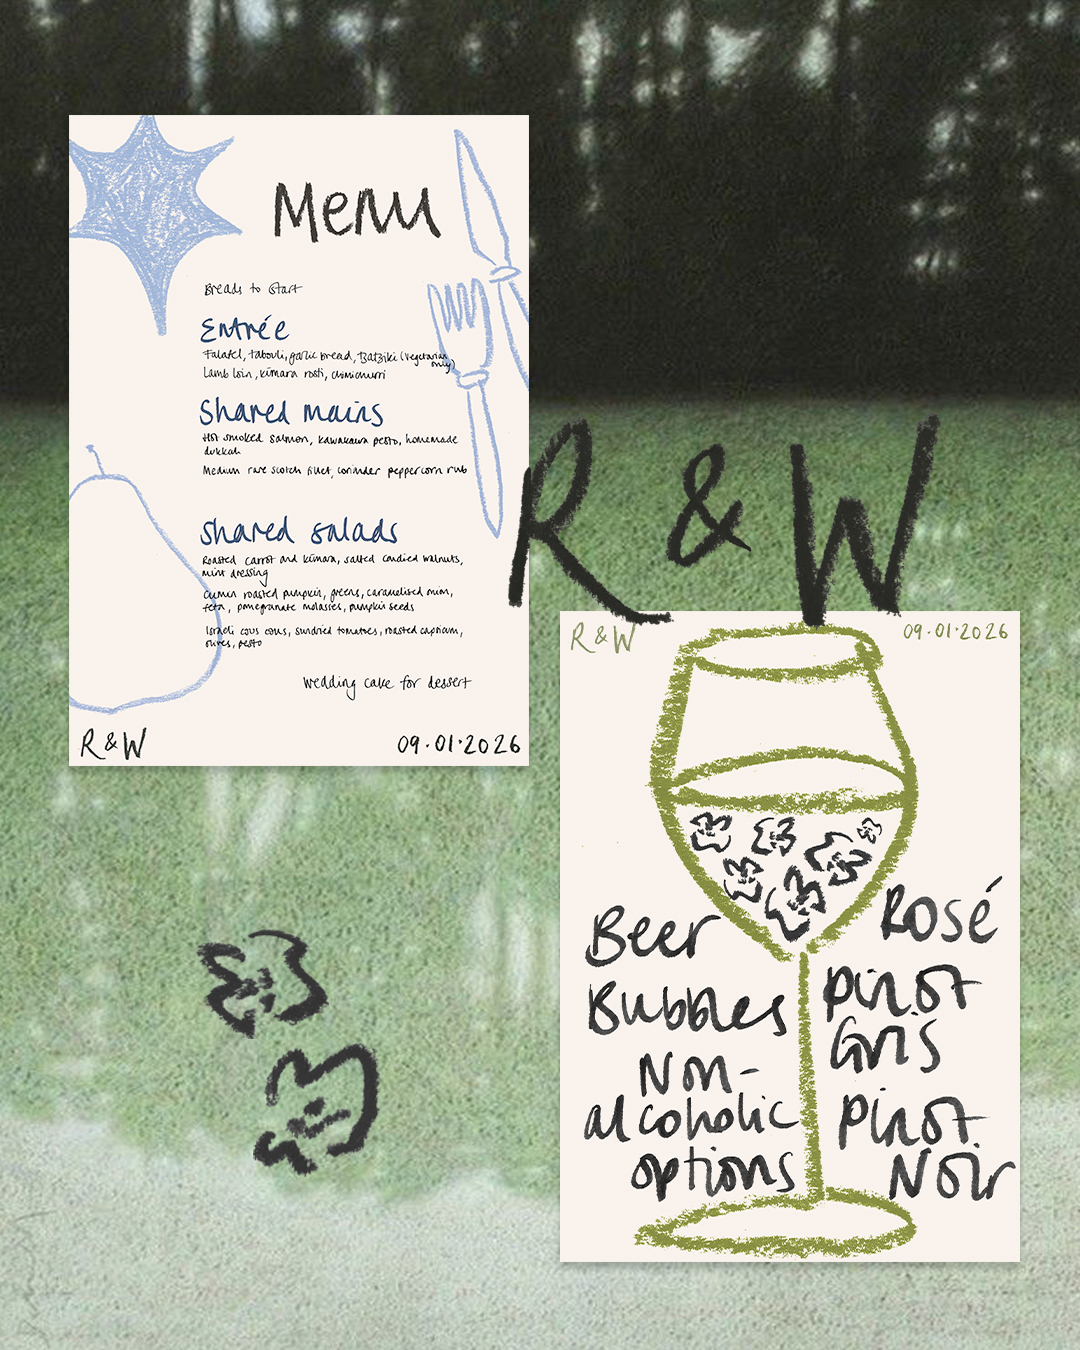 Menu
Breads to start
Entrée
Falafel, tabouli, garlic bread, tzatziki (vegetarian only)
Lamb loin, kūmara rosti, chimichurri
Shared mains
Hot smoked salmon, kawakawa pesto, homemade
dukkah
Medium rare scotch fillet, coriander peppercorn rub
Shared salads
Roasted carrot and kūmara, salted candied walnuts,
mint dressing
Cumin roasted pumpkin, greens, caramelised onion,
feta, pomegranate molasses, pumpkin seeds
Israeli cous cous, sundried tomatoes, roasted capsicum,
olives, pesto
Wedding cake for dessert
R & W
09.01.2026
R & W
R & W
09.01.2026
Beer
Bubbles
Non-
alcoholic
options
Rosé
Pinot
Gris
Pinot
Noir